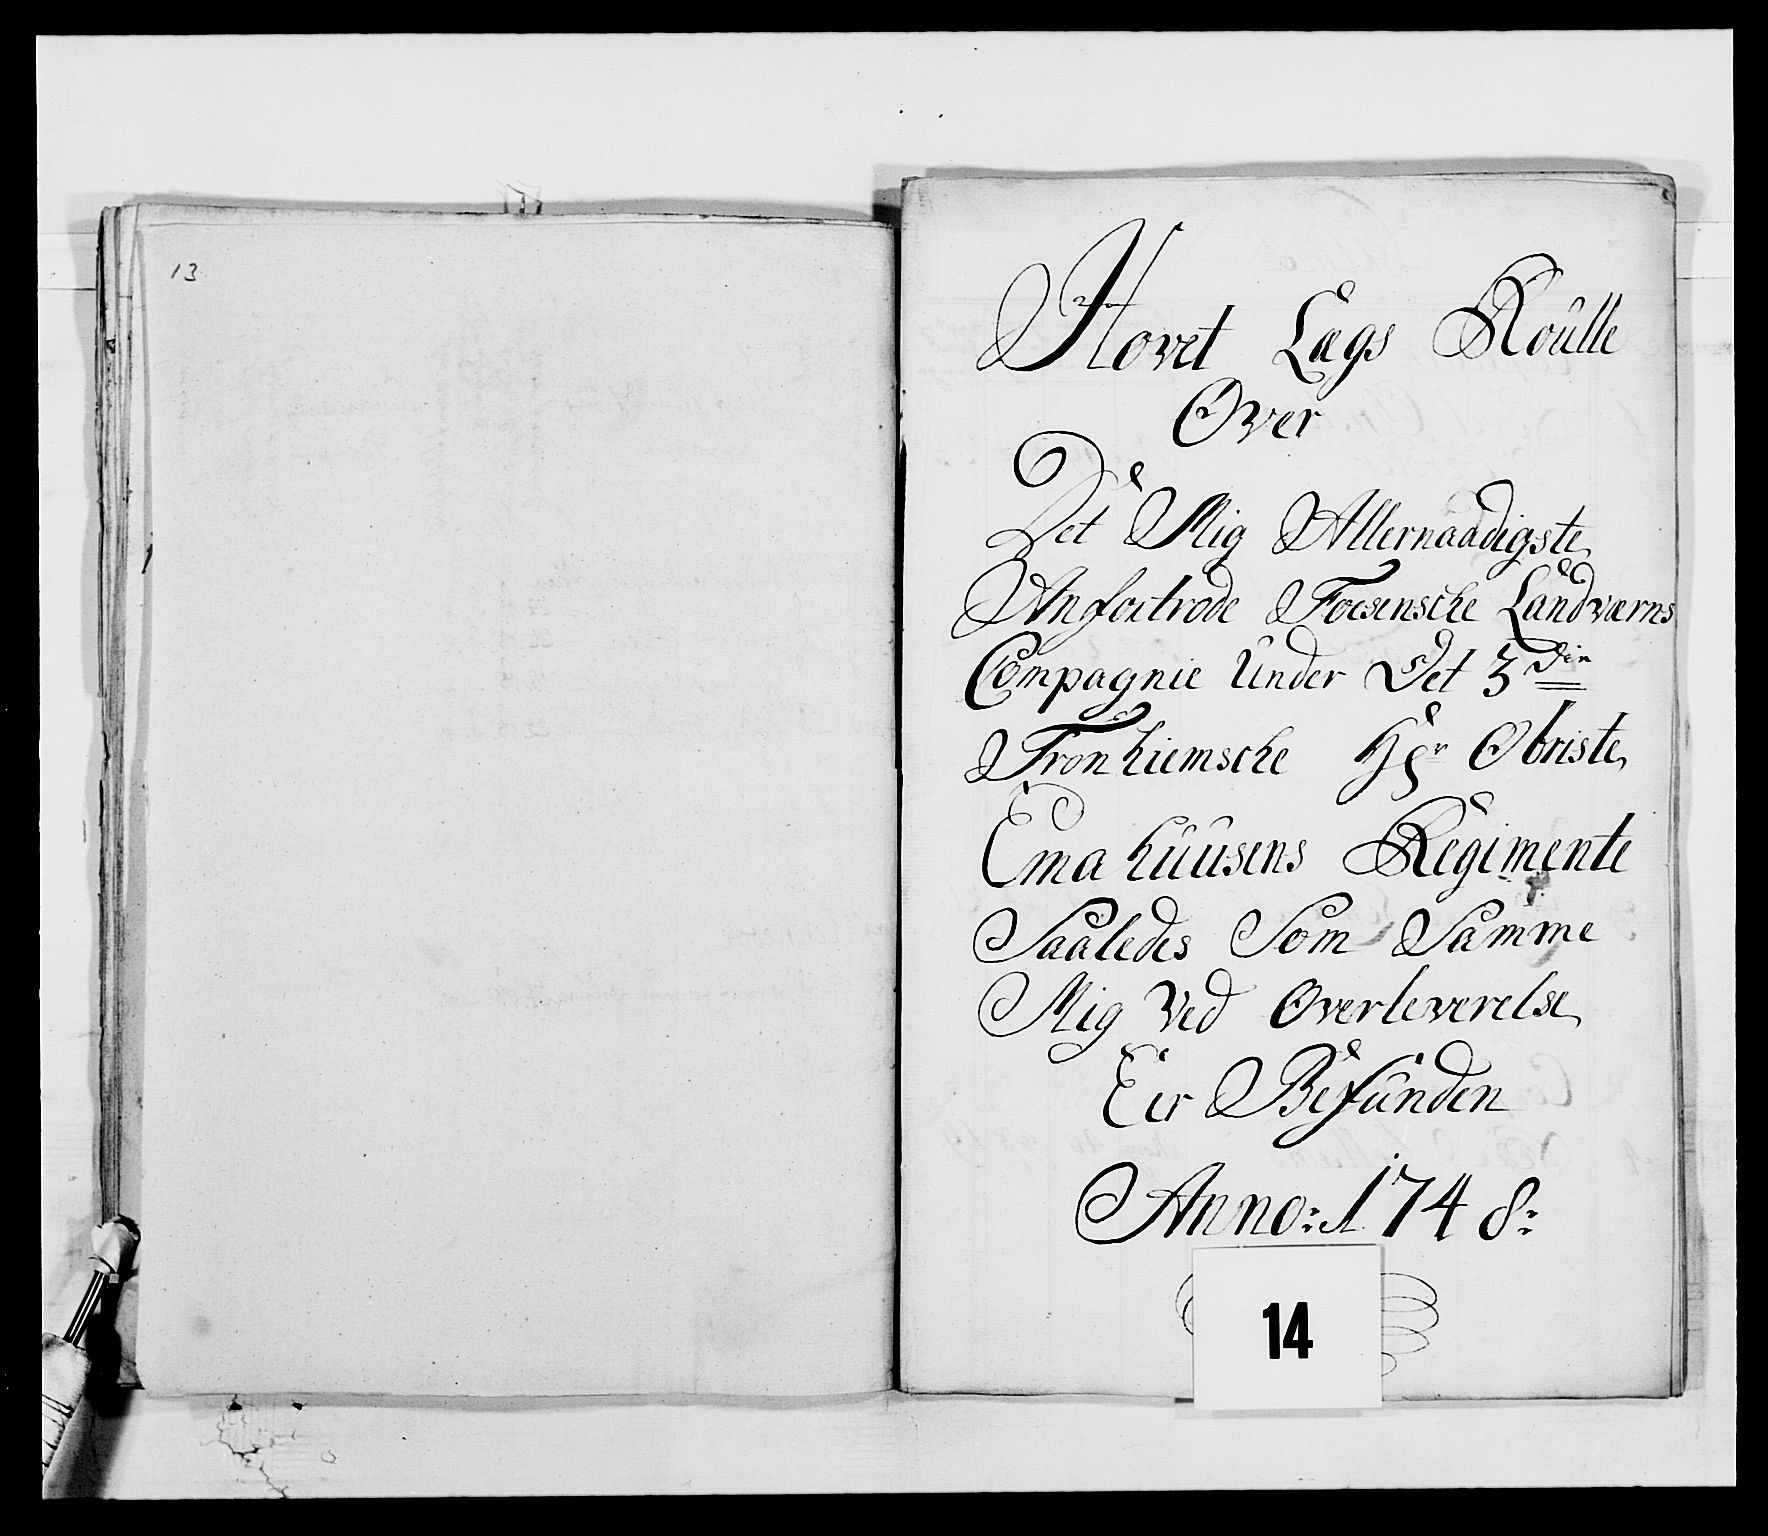 13
Hovet Lægs Roûlle
Over
Det Mig Allernaadigste
Anfortrode Foesensche Landværns
Compagnie Ûnder Det 3die
Tronhiemsche Hr Obriste
Emahuusens Regimente
Saaledes Som Samme
Mig Ved Overleverelse
Eer Befûnden
Anno: 1748:
14